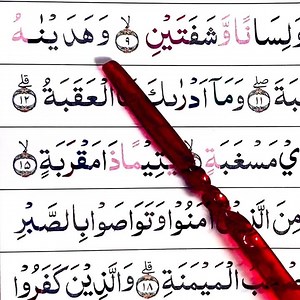 وَلِسَانًا وَّشَفَتَيْنِ ۝٩ وَهَدَيْنٰهُ
بَةَ ۝١١ وَمَاۤ اَدْرٰىكَ مَا الْعَقَبَةُ ۝١٢
يْ مَسْغَبَةٍ يَّتِيْمًا ذَا مَقْرَبَةٍ ۝١٥
مِنَ الَّذِيْنَ اٰمَنُوْا وَتَوَاصَوْا بِالصَّبْرِ
الْمَيْمَنَةِ ۝١٨ وَالَّذِيْنَ كَفَرُوْا